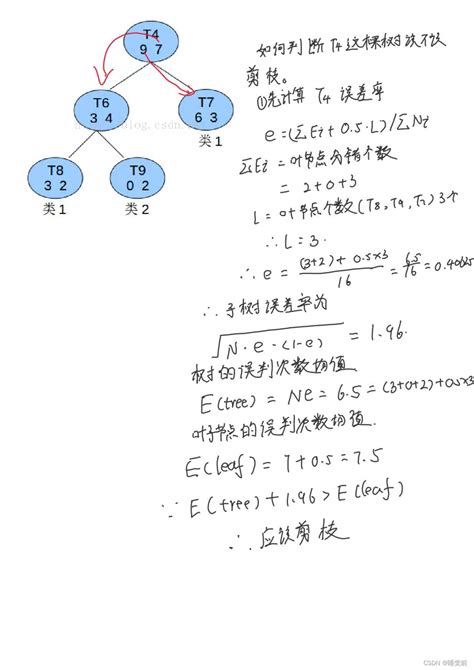 T4
9 7
T6
3 4
T7
6 3
类1
T8
3 2
T9
0 2
类1
类2
如何判断T4这棵树该不该
剪枝。
①先计算 T4 误差率
e=(ΣEi+0.5·L)/ΣNi
ΣEi=叶节点分错个数
=2+0+3
L=叶节点个数(T8,T9,T7)3个
∴L=3.
∴e=(3+2)+0.5×3/16=6.5/16=0.4065
∴子树误差率为
√N·e·(1-e)=1.96.
树的误判次数均值
E(tree)=Ne=6.5=(3+0+2)+0.5×3
叶子节点的误判次数均值.
E(leaf)=7+0.5=7.5
∵E(tree)+1.96>E(leaf)
∴应该剪枝
CSDN @睡觉前